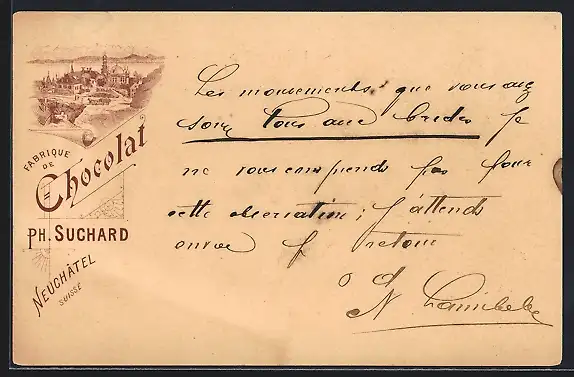 FABRIQUE
DE
Chocolat
PH. SUCHARD
NEUCHÂTEL
SUISSE
Les monuments que vous avez
sont tous aux
Je
ne vous comprends pas pour
cette observation; j'attends
retour